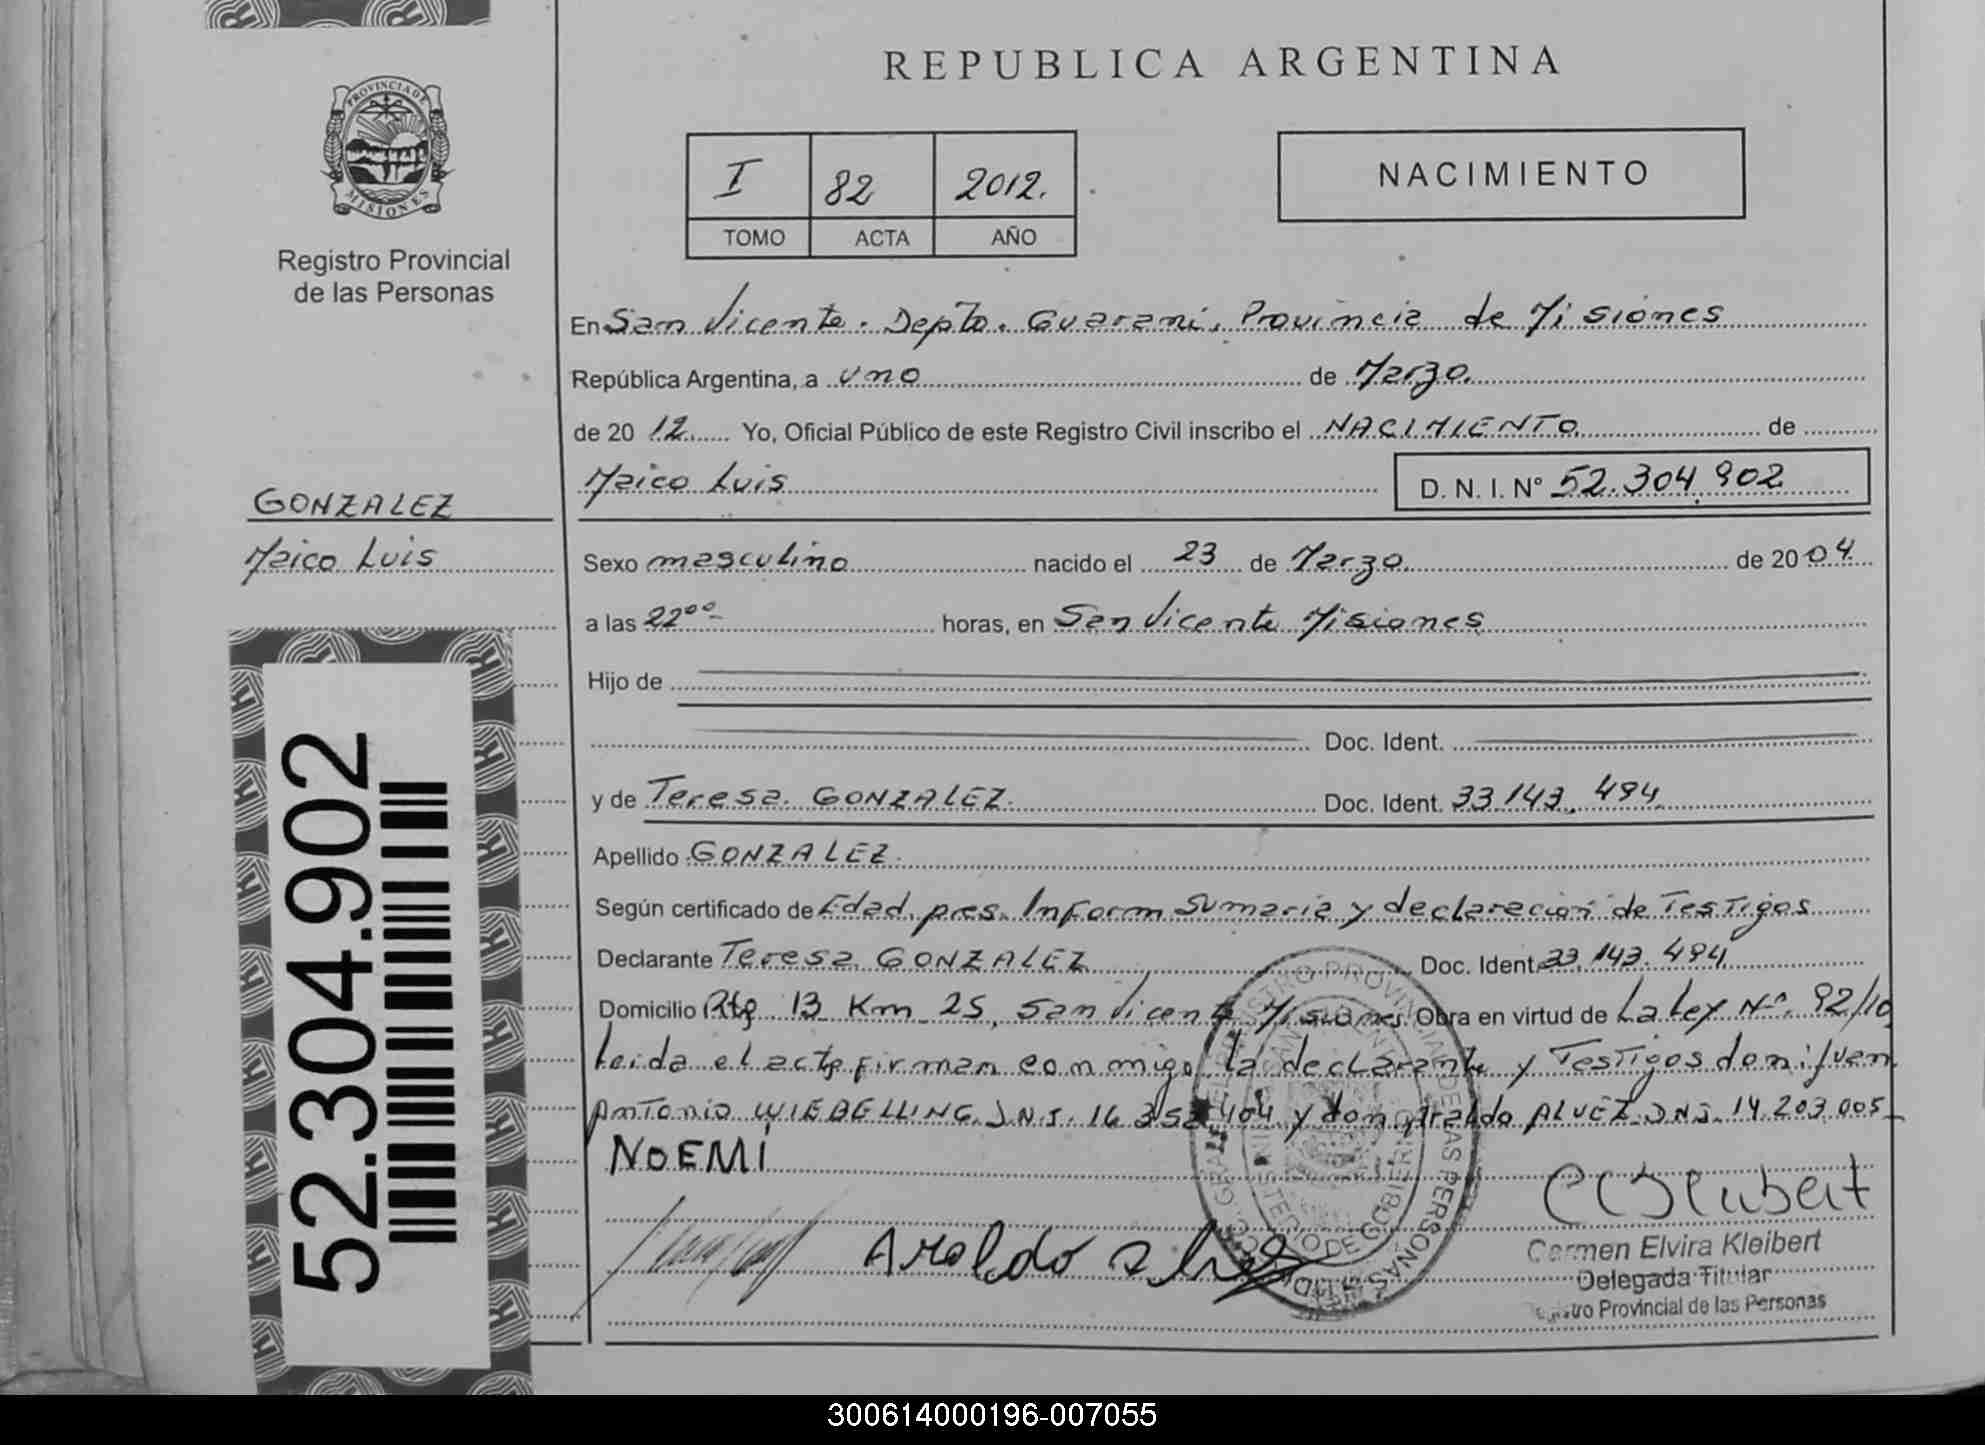 REPUBLICA ARGENTINA
PROVINCIA DE
MISIONES
Registro Provincial
de las Personas
I 82 2012.
TOMO ACTA AÑO
NACIMIENTO
En San Vicente. Depto. Guaraní, Provincia de Misiones
República Argentina, a uno de Marzo.
de 20 12 Yo, Oficial Público de este Registro Civil inscribo el NACIMIENTO de
Maico Luis D. N. I. Nº 52.304.902
GONZALEZ
Maico Luis
Sexo masculino nacido el 23 de Marzo de 20 04
a las 22⁰⁰ horas, en San Vicente Misiones
Hijo de
Doc. Ident.
y de Teresa GONZALEZ. Doc. Ident. 33.143.494
Apellido GONZALEZ.
Según certificado de Edad, pres. Inform Sumaria y declaración de Testigos
Declarante Teresa GONZALEZ Doc. Ident. 33.143.494
Domicilio Rta 13 Km 25, San Vicente Misiones. Obra en virtud de La Ley Nº 92/10
Leida el acta firman conmigo la declarante y Testigos don: Juan
Antonio WIEBELLING D.N.I. 16.352.404 y don Araldo ALVEZ D.N.I. 14.203.005
NOEMI
Araldo
Carmen Elvira Kleibert
Delegada Titular
Registro Provincial de las Personas
REGISTRO PROVINCIAL DE LAS PERSONAS
MINISTERIO DE GOBIERNO
52.304.902
300614000196-007055